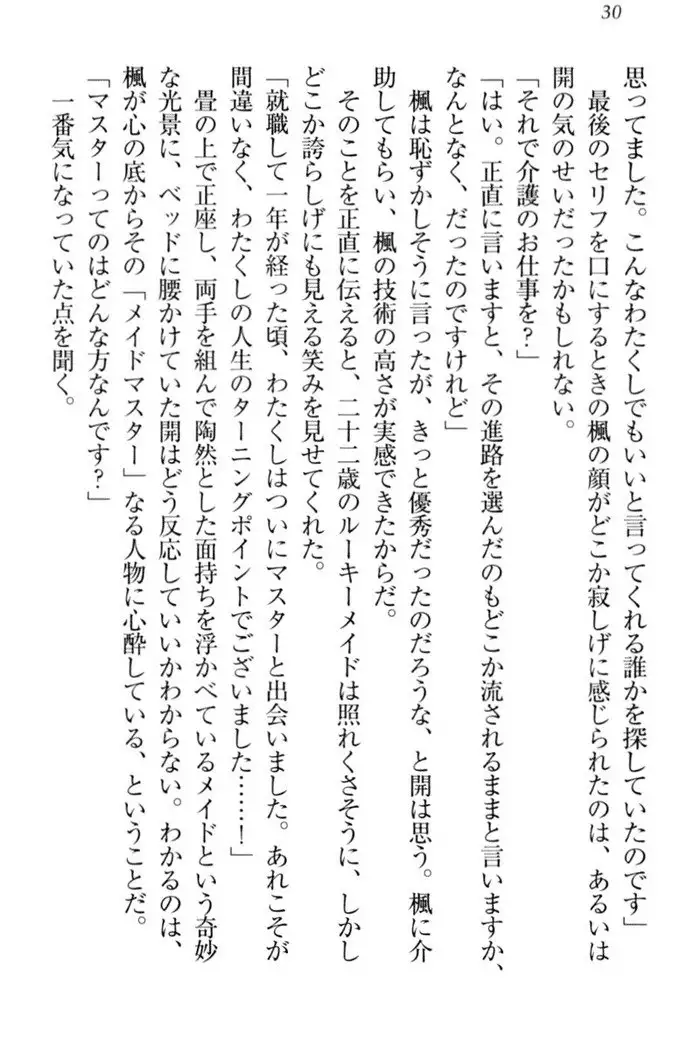 30
思ってました。こんなわたくしでもいいと言ってくれる誰かを探していたのです」
　最後のセリフを口にするときの楓の顔がどこか寂しげに感じられたのは、あるいは
開の気のせいだったかもしれない。
「それで介護のお仕事を？」
「はい。正直に言いますと、その進路を選んだのもどこか流されるままと言いますか、
なんとなく、だったのですけれど」
　楓は恥ずかしそうに言ったが、きっと優秀だったのだろうな、と開は思う。楓に介
助してもらい、楓の技術の高さが実感できたからだ。
　そのことを正直に伝えると、二十二歳のルーキーメイドは照れくさそうに、しかし
どこか誇らしげにも見える笑みを見せてくれた。
「就職して一年が経った頃、わたくしはついにマスターと出会いました。あれこそが
間違いなく、わたくしの人生のターニングポイントでございました………！」
　畳の上で正座し、両手を組んで陶然とした面持ちを浮かべているメイドという奇妙
な光景に、ベッドに腰かけていた開はどう反応していいかわからない。わかるのは、
楓が心の底からその「メイドマスター」なる人物に心酔している、ということだ。
「マスターってのはどんな方なんです？」
　一番気になっていた点を聞く。